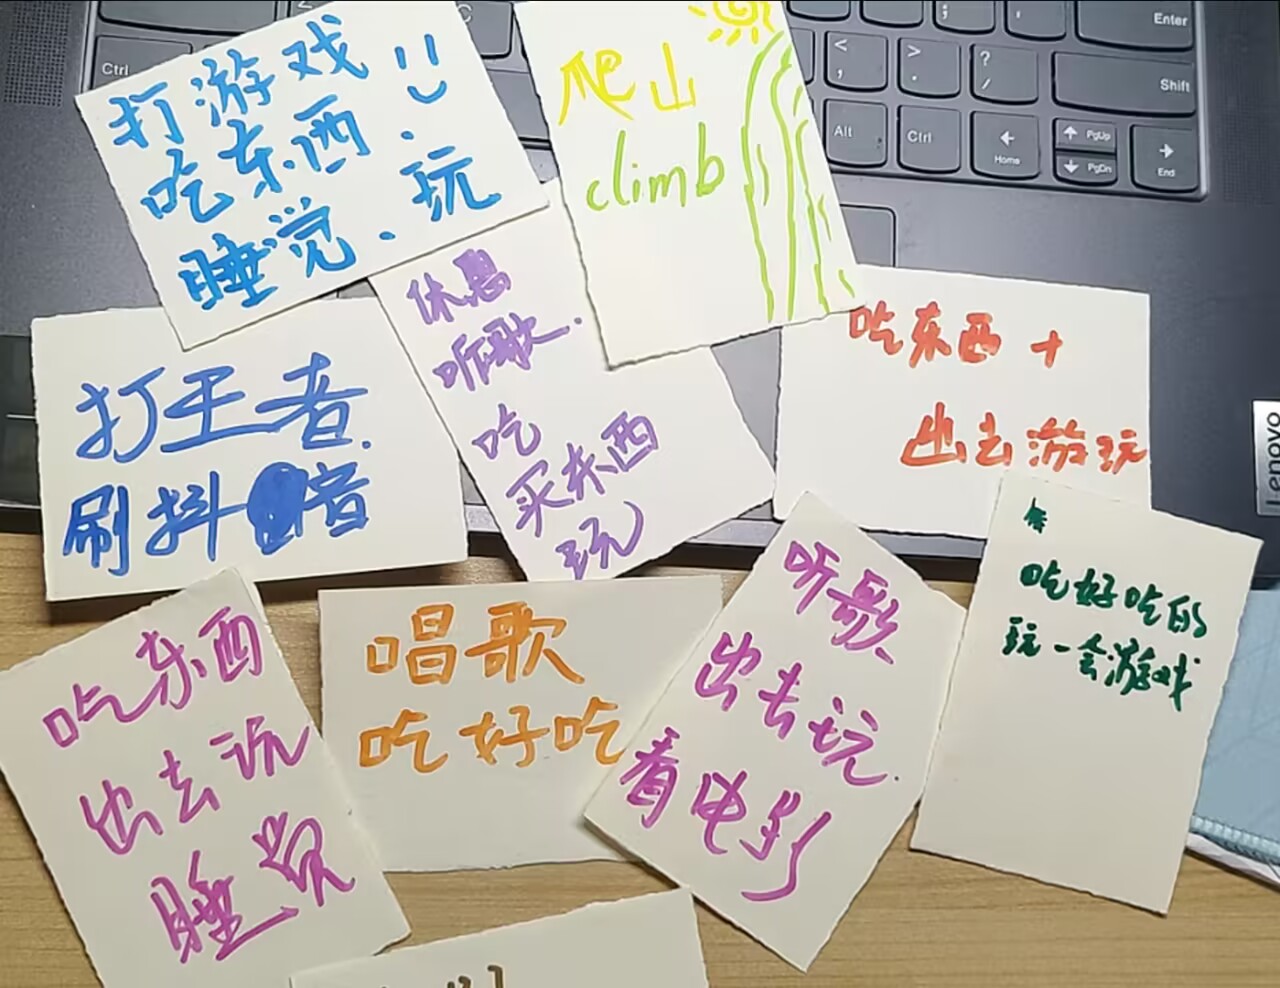 打游戏
吃东西.
睡觉.玩
爬山
climb
休息
听歌.
吃
买东西
玩
吃东西+
出去游玩
打王者.
刷抖音
吃东西
出去玩
睡觉
唱歌
吃好吃
听歌
出去玩.
看电影
吃好吃的
玩一会游戏
Ctrl
C
<
,
>
.
?
/
Enter
Shift
Alt
Ctrl
Home
PgUp
PgDn
End
Lenovo